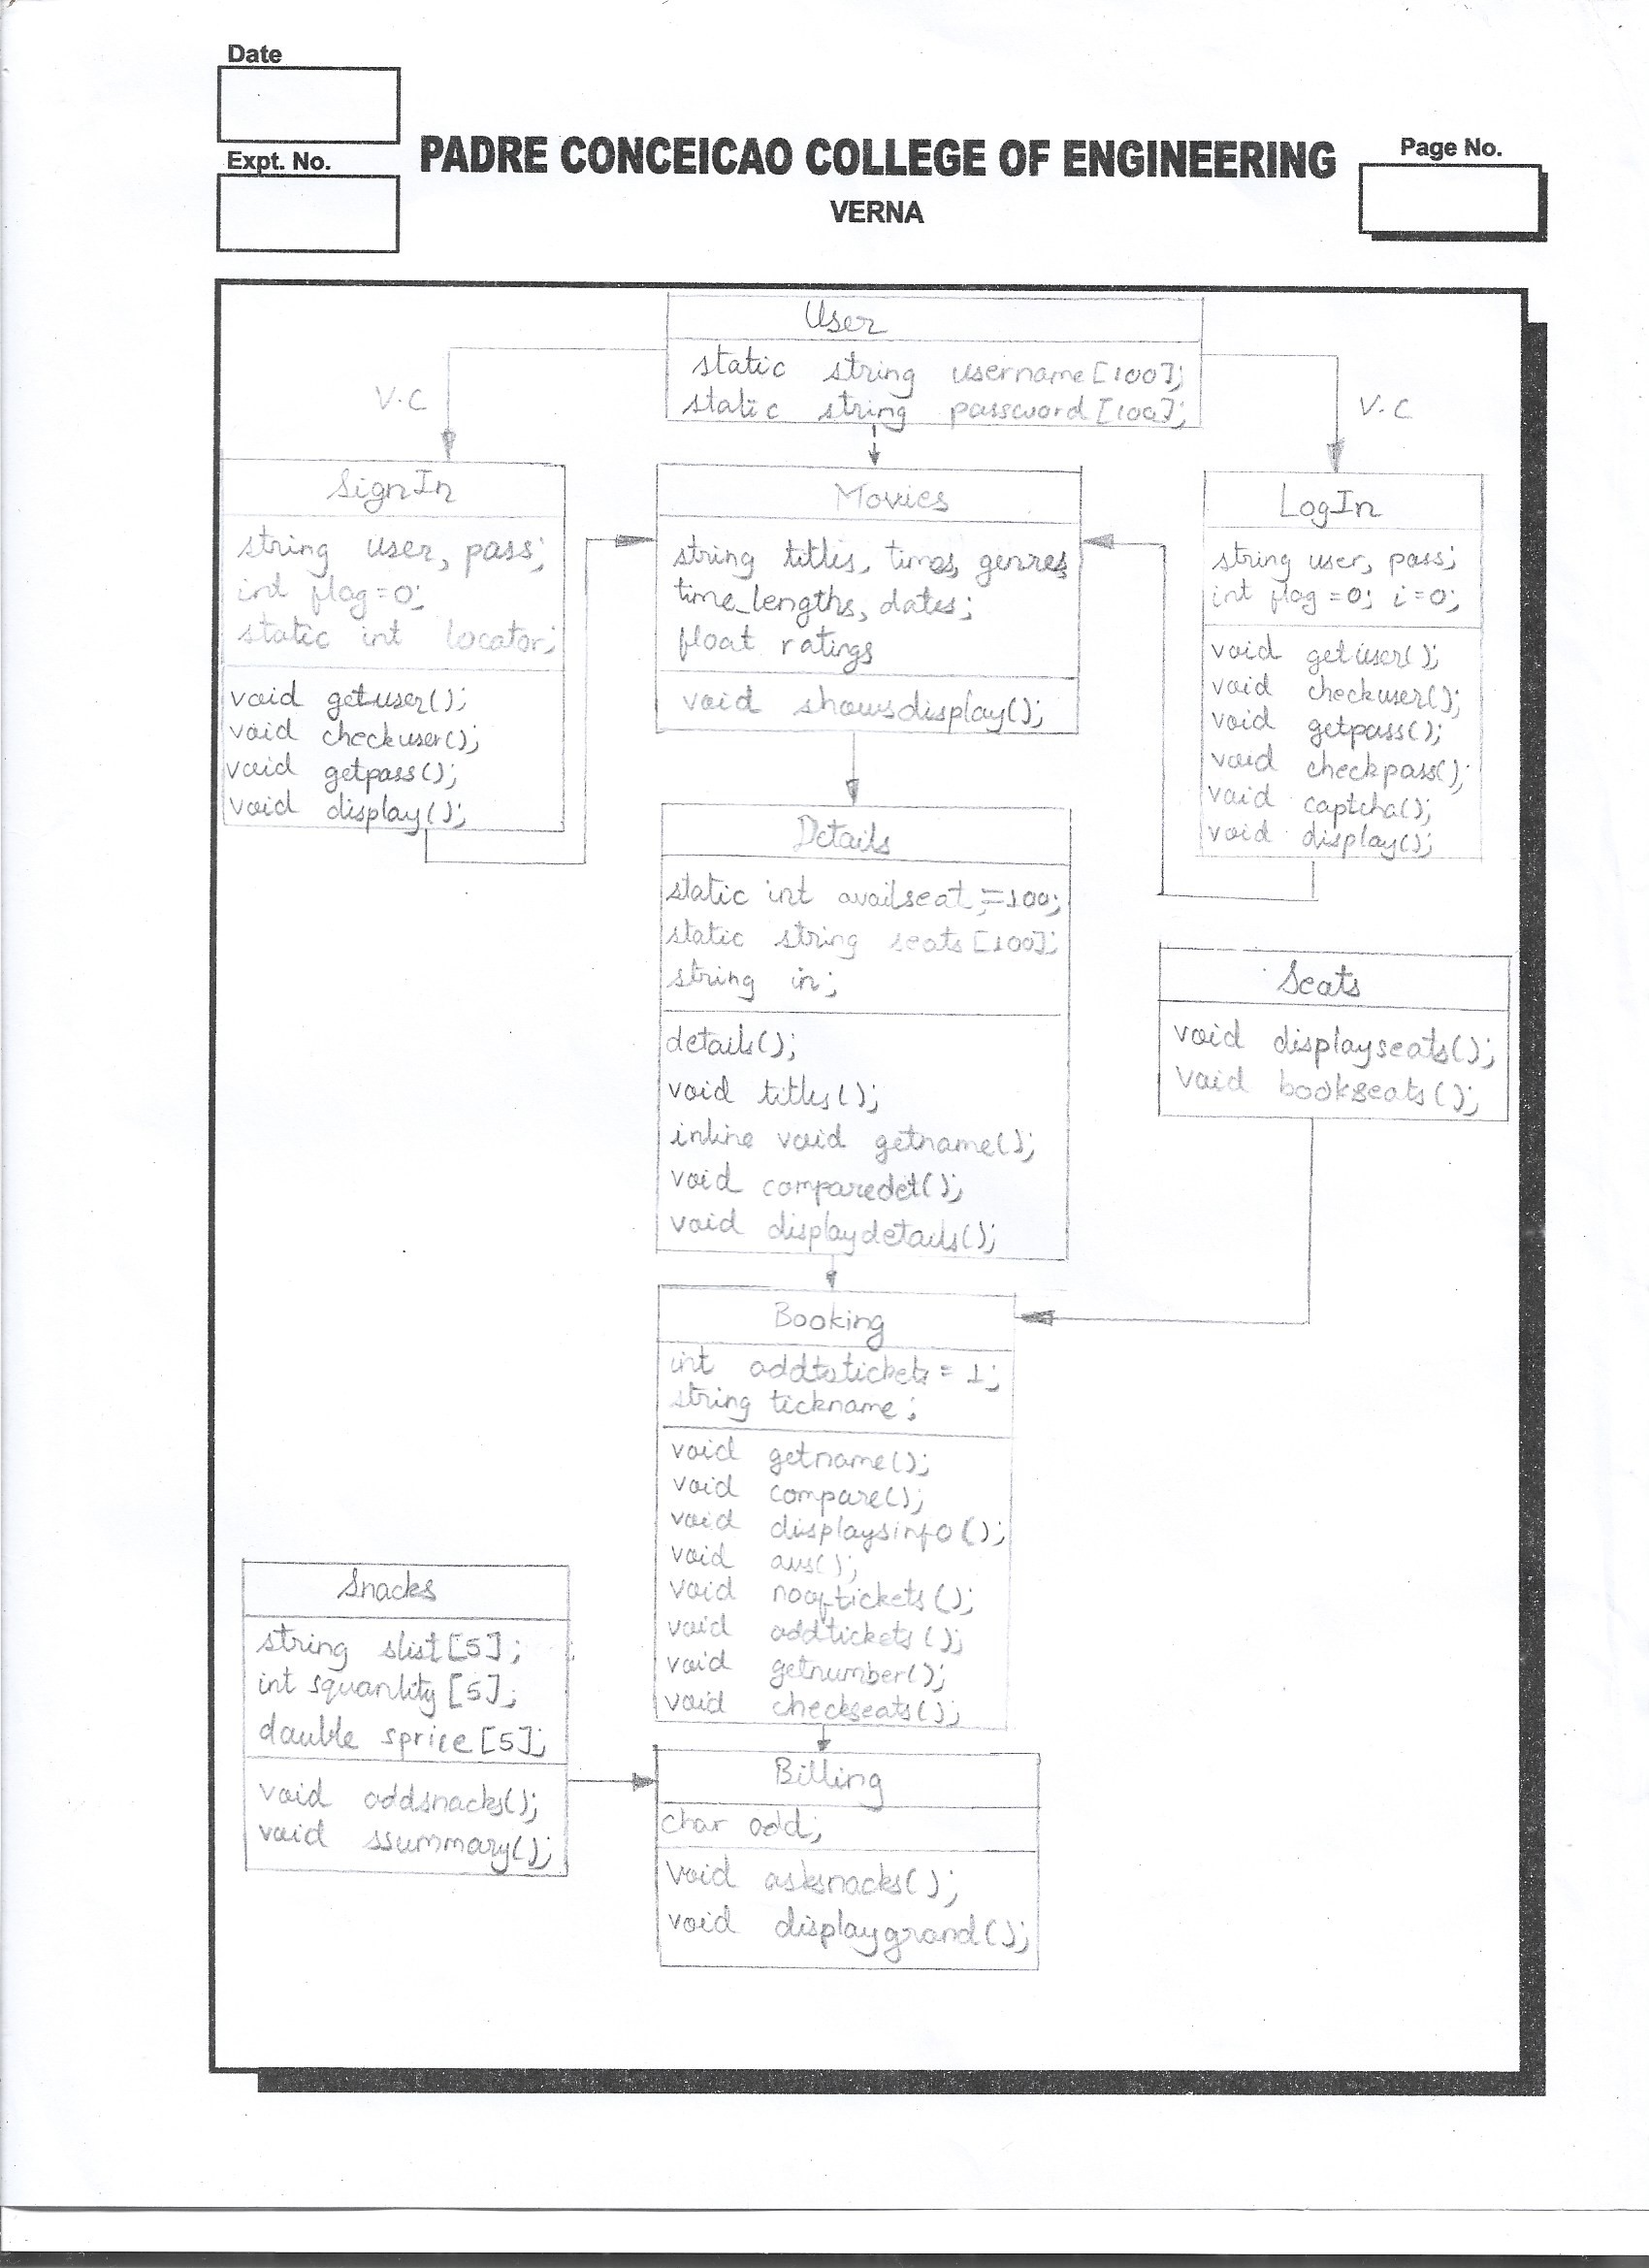 Date
Expt. No.
PADRE CONCEICAO COLLEGE OF ENGINEERING
VERNA
Page No.
User
static string username[100];
static string password[100];
V.C
V.C
SignIn
string user, pass;
int flag=0;
static int locator;
void getuser();
void checkuser();
void getpass();
void display();
Movies
string titles, times, genres
time_lengths, dates;
float ratings
void showsdisplay();
LogIn
string user, pass;
int flag=0; i=0;
void getuser();
void checkuser();
void getpass();
void checkpass();
void captcha();
void display();
Details
static int availseat,=100;
static string seats[100];
string in;
details();
void titles();
inline void getname();
void comparedet();
void displaydetails();
Seats
void displayseats();
void bookseats();
Booking
int addtotickets=1;
string tickname;
void getname();
void compare();
void displaysinfo();
void
void nooftickets();
void addtickets();
void getnumber();
void checkseats();
Snacks
string slist[5];
int squantity[5];
double sprice[5];
void addsnacks();
void ssummary();
Billing
char add;
void asksnacks();
void displaygrand();